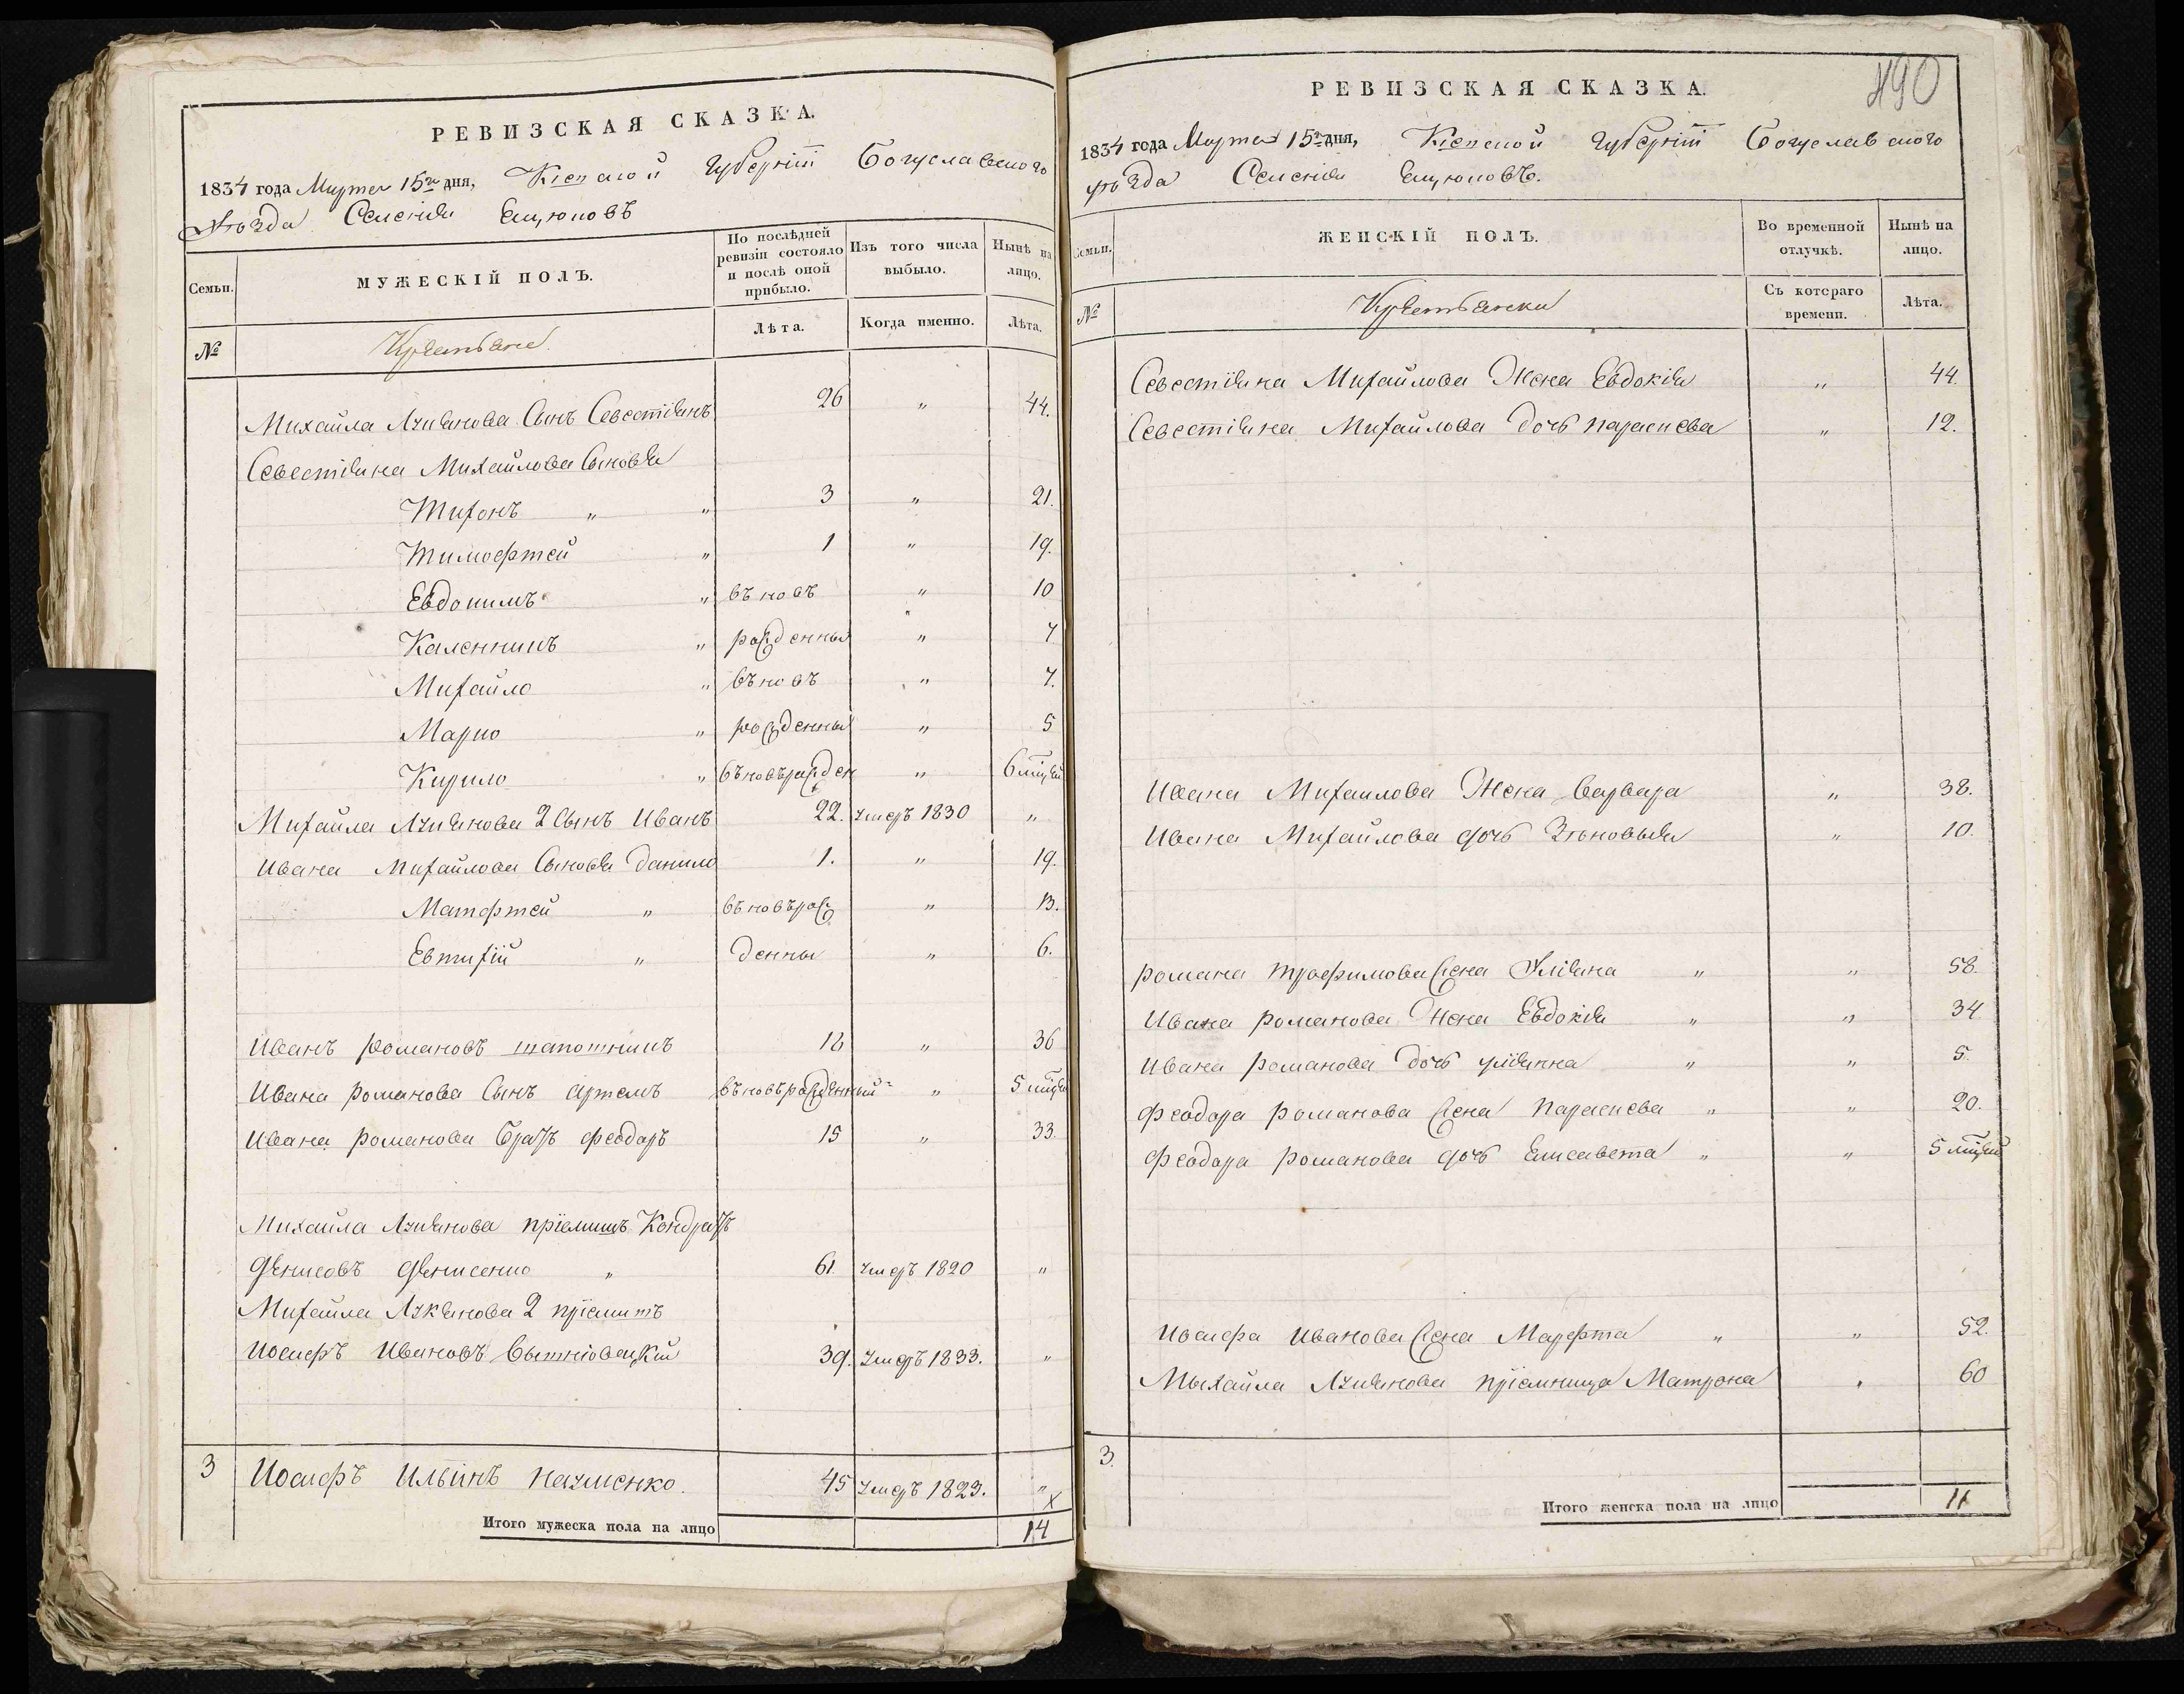 РЕВИЗСКАЯ СКАЗКА.
1834 года Марта 15го дня, Кіевской губерніи Богуславского
уѣзда Селенія
Семьи.
МУЖЕСКІЙ ПОЛЪ.
По послѣдней ревизіи состояло и послѣ оной прибыло.
Изъ того числа выбыло.
Нынѣ на лицо.
№
Крестьяне
Лѣта.
Когда именно.
Лѣта.
Михайла Лукянова Сынъ Севестіянъ 26 " 44.
Севестіяна Михайлова Сыновья
Тихонъ " " 3 " 21.
Тимофтей " 1 " 19.
Евдокимъ " въновъ " 10
Каленникъ " рожденны " 7
Михайло " въновъ " 7.
Марко " рожденны " 5
Кирило " въновърожден " 6 мцей
Михайла Лукянова 2 Сынъ Иванъ 22. умеръ 1830 "
Ивана Михайлова Сыновья Данило 1. " 19.
Матфтей " въновърож " 13.
Евтихій " денны " 6.
Иванъ Романовъ 18 " 36
Ивана Романова Сынъ Артемъ въновърожденный " 5 мцей
Ивана Романова Братъ Феодоръ 15 " 33.
Михайла Лукянова пріемишъ Кондратъ
Денисовъ Денисенко " 61. умеръ 1820 "
Михайла Лукянова 2 пріемишъ
Иосифъ Ивановъ 39. умеръ 1833. "
3 Иосифъ Ильинъ Науменко. 45 умеръ 1823. "
х
Итого мужеска пола на лицо 14
490
РЕВИЗСКАЯ СКАЗКА.
1834 года Марта 15го дня, Кіевской губерніи Богуславского
уѣзда Селенія
Семьи.
ЖЕНСКІЙ ПОЛЪ.
Во временной отлучкѣ.
Нынѣ на лицо.
№
Крестьянки
Съ котораго времени.
Лѣта.
Севестіяна Михайлова Жена Евдокія " 44.
Севестіяна Михайлова Дочь Параскева " 12.
Ивана Михайлова Жена Варвара " 38.
Ивана Михайлова дочь Зѣновыя " 10.
Романа Трофимова жена Уліяна " " 58.
Ивана Романова Жена Евдокія " " 34
Ивана Романова Дочь Уліянна " " 5.
Феодора Романова жена Параскева " " 20.
Феодора Романова дочь Елисавета " " 5 мцей
Иосифа Иванова жена Марфта " " 52.
Мыхайла Лукянова пріемница Матрона " 60
3.
Итого женска пола на лицо 11